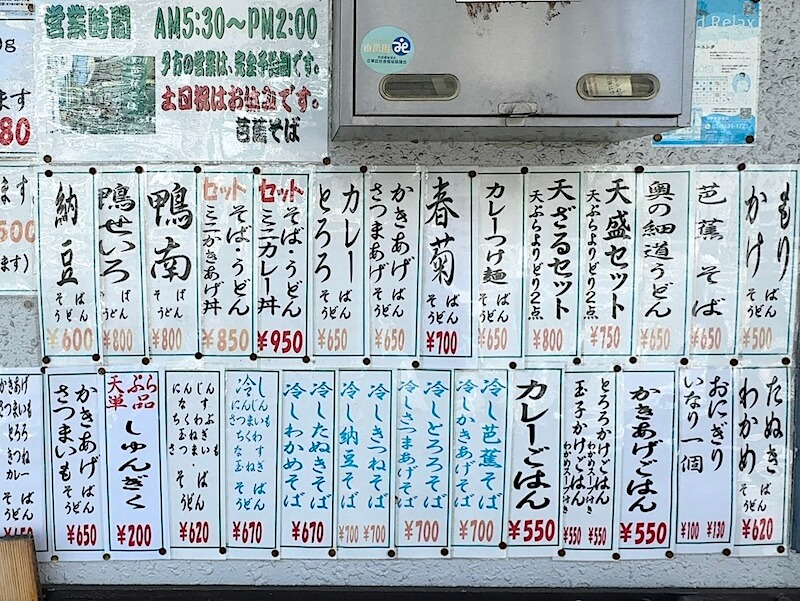 営業時間 AM5:30～PM2:00
夕方の営業は、完全予約制です。
土日祝はお休みです。
芭蕉そば
もり かけ そば うどん ¥500
芭蕉そば ¥650
奥の細道うどん ¥650
天盛セット 天ぷらよりどり2点 ¥750
天ざるセット 天ぷらよりどり2点 ¥800
カレーつけ麺 そば うどん ¥650
春菊 そば うどん ¥700
かきあげ さつまあげ そば うどん ¥650
カレー とろろ そば うどん ¥650
セット そば・うどん ミニカレー丼 ¥950
セット そば・うどん ミニかきあげ丼 ¥850
鴨南 そば うどん ¥800
鴨せいろ そば うどん ¥800
納豆 そば うどん ¥600
たぬき わかめ そば うどん ¥620
おにぎり ¥130
いなり一個 ¥100
かきあげごはん ¥550
とろろかけごはん わかめスープ付き ¥550
玉子かけごはん わかめスープ付き ¥550
カレーごはん ¥550
冷し芭蕉そば 冷しかきあげそば ¥700
冷しとろろそば 冷しさつまあげそば ¥700
冷しきつねそば ¥700
冷し納豆そば ¥700
冷したぬきそば 冷しわかめそば ¥670
冷し にんじん さつまいも ちくわ なす 玉ねぎ そば うどん ¥670
にんじん なす ちくわ 玉ねぎ さつまいも そば うどん ¥620
天ぷら単品 しゅんぎく ¥200
かきあげ さつまいも そば うどん ¥650
かきあげ さつまいも とろろ きつね カレー そば うどん